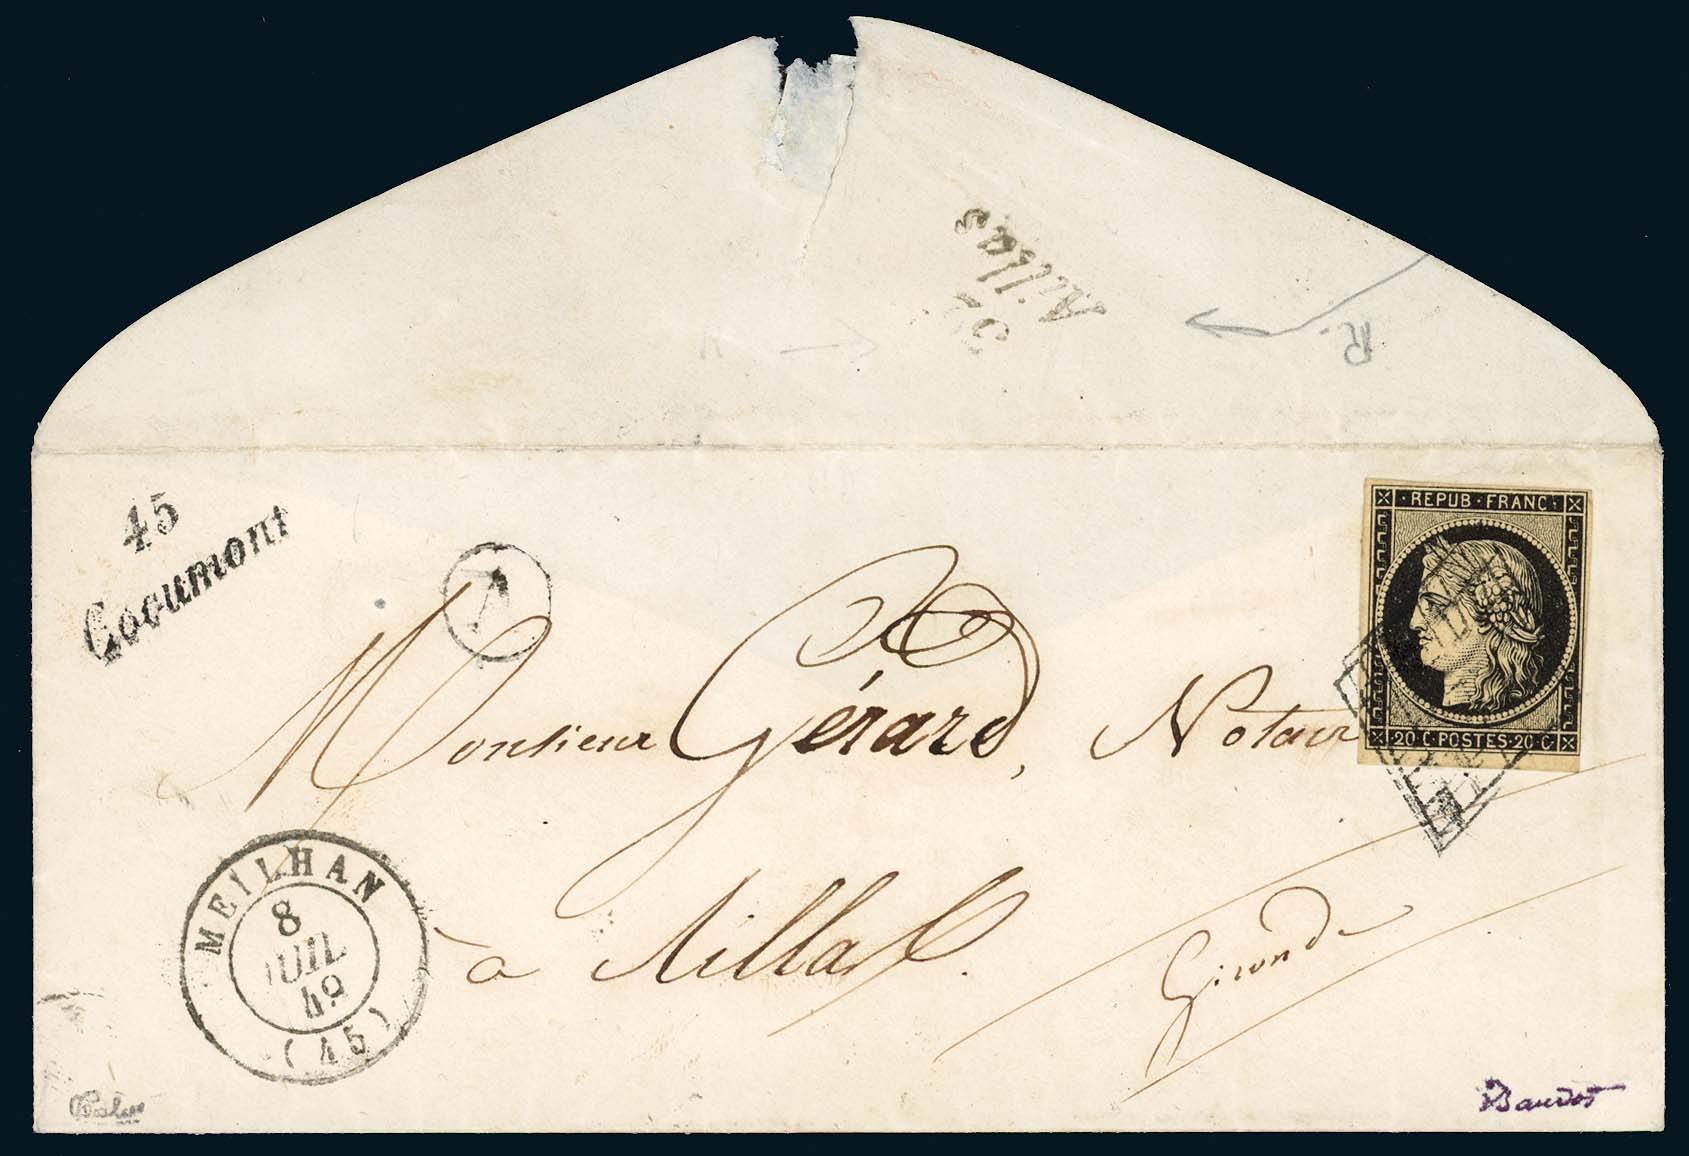 32
Aillas
R.
45
Cocumont
A
REPUB·FRANC·
20·C·POSTES·20·C·
Monsieur Gérard, Notaire
à Aillas.
Gironde
MEILHAN
8
JUIL
49
(45)
Baudot